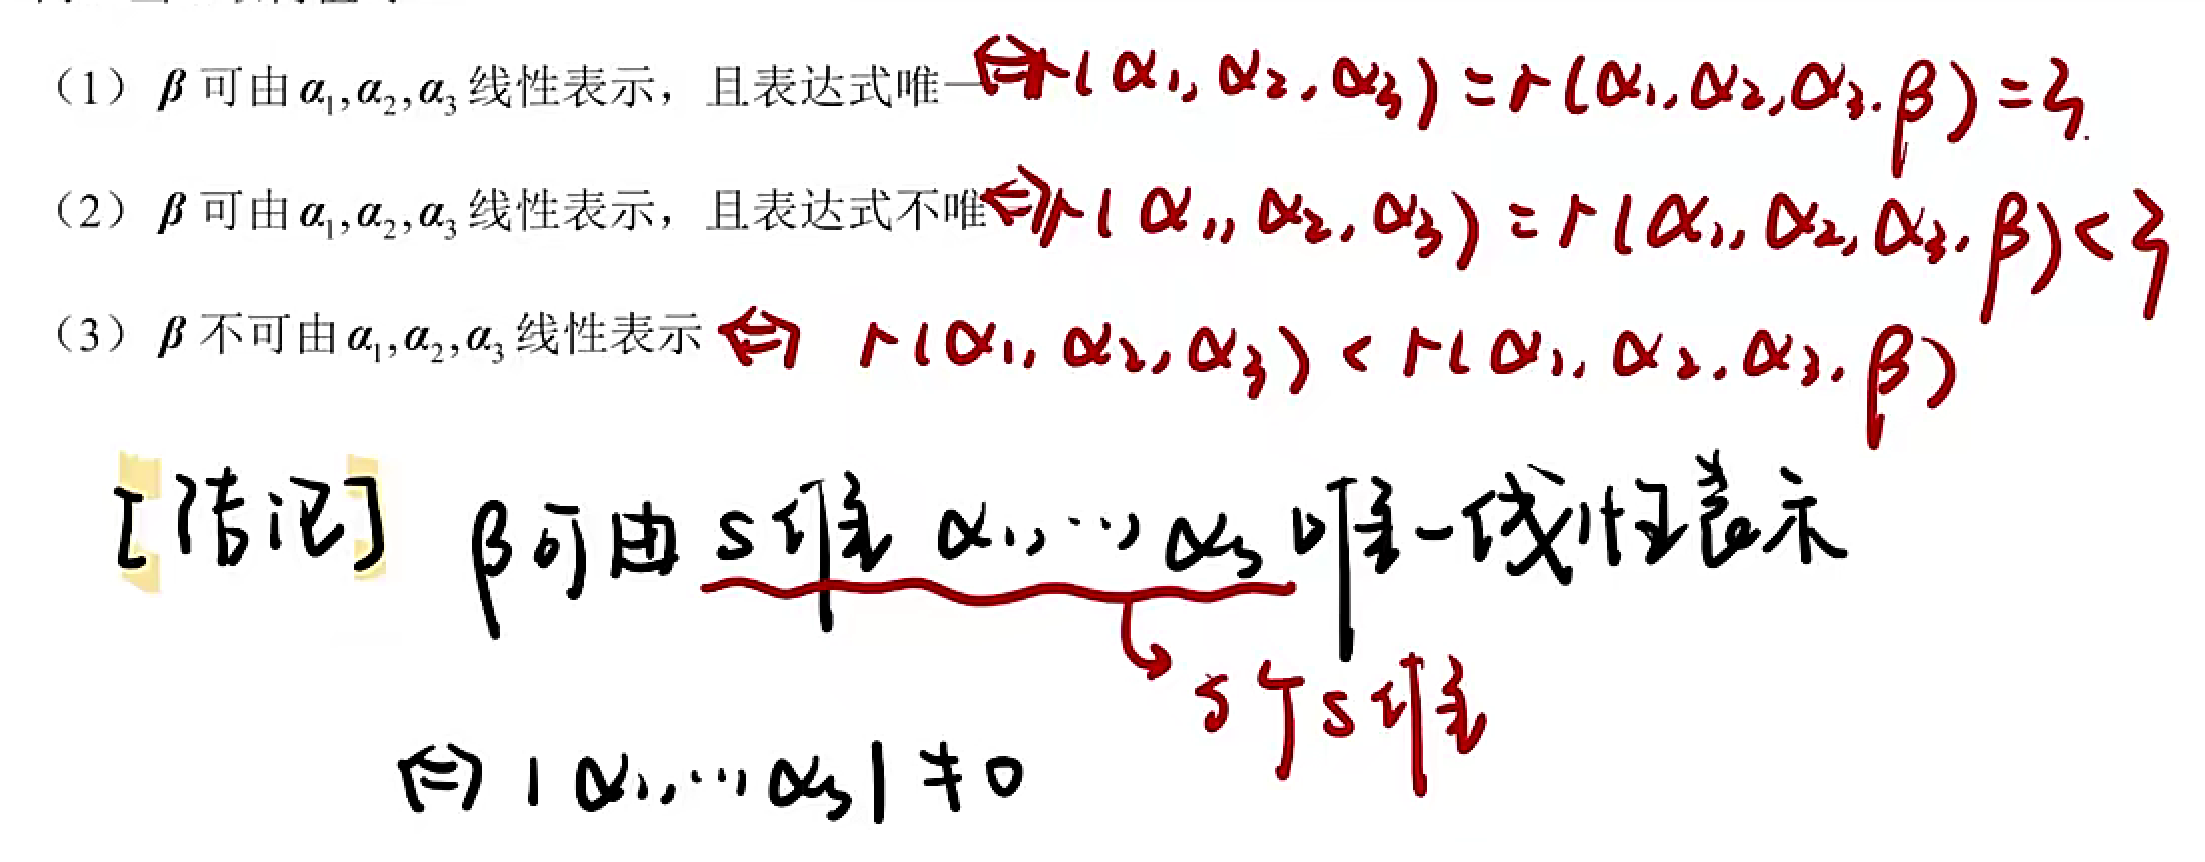 (1) β 可由 α₁,α₂,α₃ 线性表示，且表达式唯一 ⇔ r(α₁,α₂,α₃) = r(α₁,α₂,α₃,β) = 3
(2) β 可由 α₁,α₂,α₃ 线性表示，且表达式不唯 ⇔ r(α₁,α₂,α₃) = r(α₁,α₂,α₃,β) < 3
(3) β 不可由 α₁,α₂,α₃ 线性表示 ⇔ r(α₁,α₂,α₃) < r(α₁,α₂,α₃,β)
[传记] β可由 s维 α₁,…,αₛ 唯一线性表示
s个s维
⇔ |α₁,…,αₛ| ≠ 0